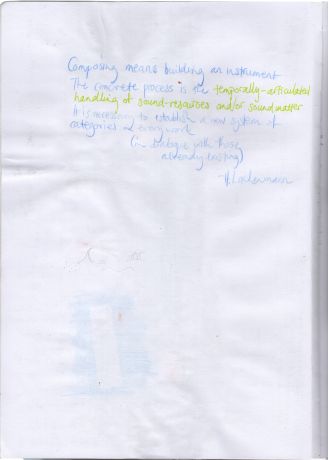 Composing means building an instrument
The concrete process is the temporally-articulated
handling of sound-resources and/or sound matter
It is necessary to establish a new system of
categories in every work
(in dialogue with those
already existing)
-H. Lachenmann